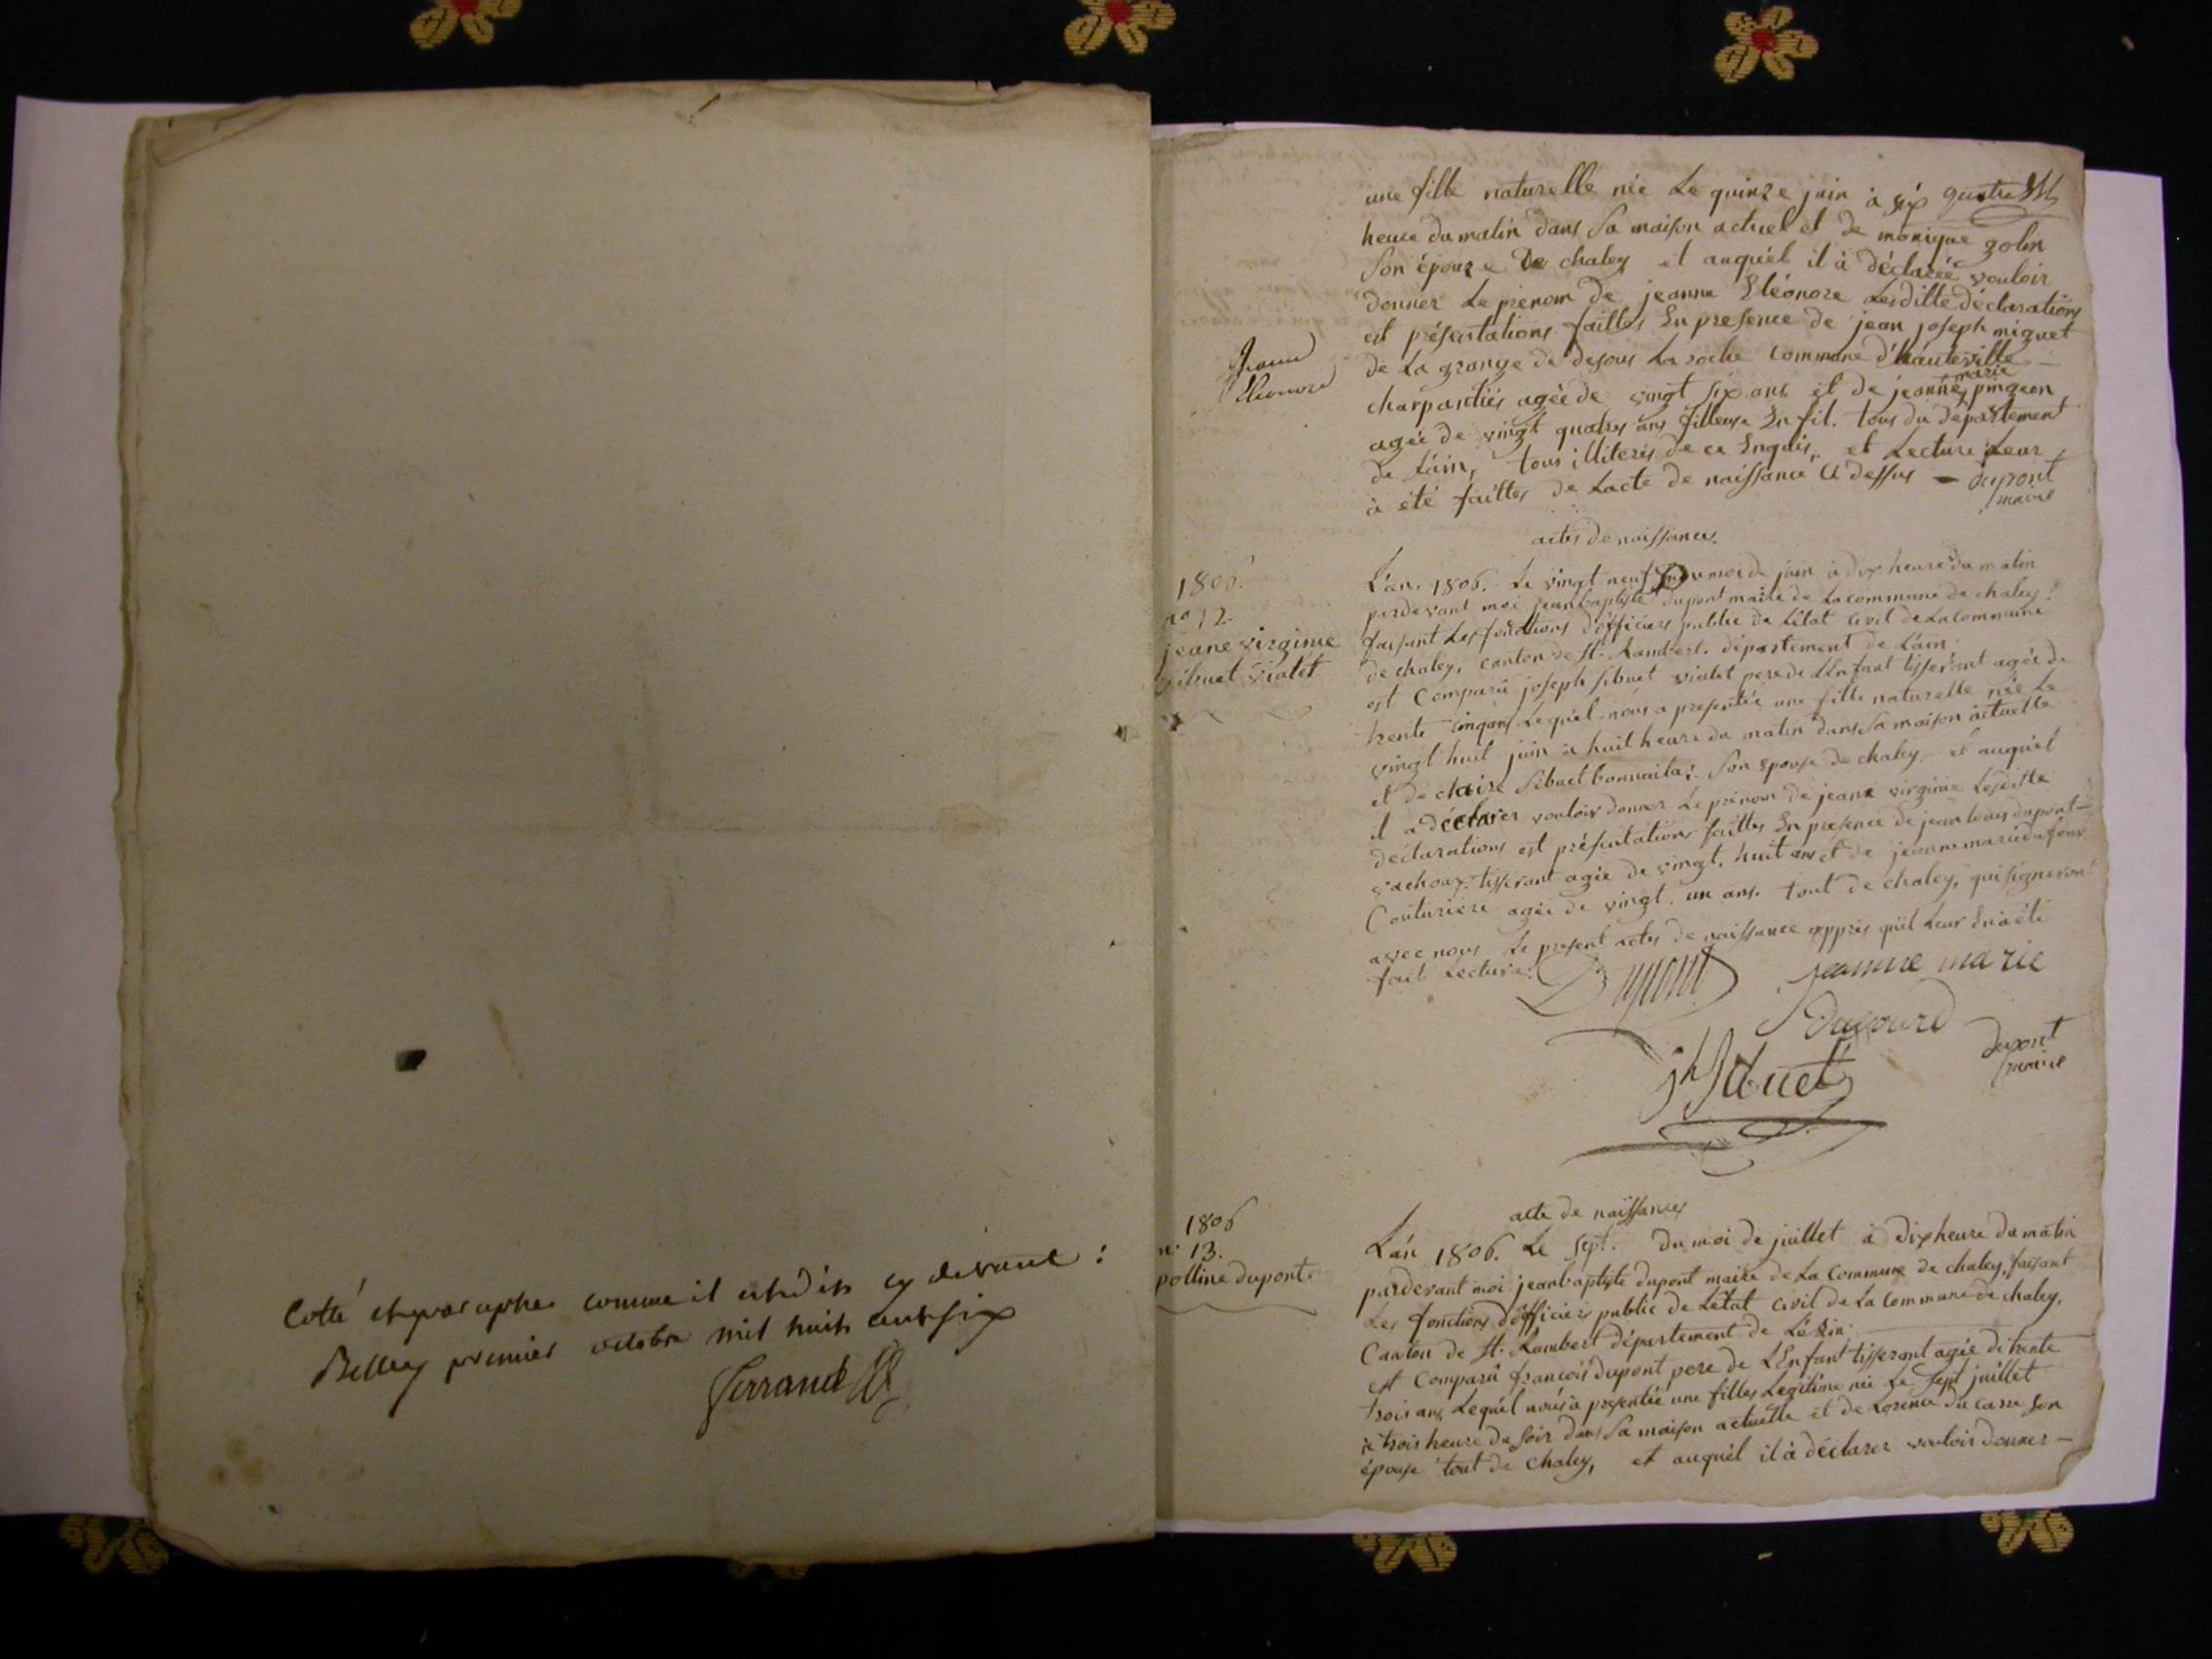 Cotté et paraphé comme il est dit cy devant :
Belley premier octobre mil huit cent six
Ferrand
une fille naturelle née Le quinze juin à six quatre
heure du matin dans Sa maison actuel et de monique golin
Son épouze De chaley et auquél il à déclarée vouloir
donner Le prenom de jeanne Eléonore Lesditte déclarations
est présentations faittes En presence de jean joseph miguet
de La grange de desous La roche commune d'hauteville —
charpantiés agée de vingt six ans et de jeanne marie pingeon
agée de vingt quatres ans filleuse En fil. tous du département
de Láin, tous illiteris de ce Enquis, et Lecture Leur
à été faittes de Lacte de naissance Ci dessus — dupont
maire
Jeanne
Eleonore
actes de naissances.
1806.
no 12.
jeane virginie
sibuet violet
L'an. 1806. Le vingt neuf du moi de juin à dix heure du matin
pardevant moi jean baptiste dupont maire de La commune de chaley.
faisant Les fonctions d'officiers public de Létat civil de La commune
de chaley, canton de St. Rambert. département de Láin.
est Comparû joseph sibuet violet pere de LEnfant tisserant agée de
trente cinq ans Lequél nous a presentée une fille naturelle née Le
vingt huit juin à huit heure du matin dans Sa maison actuelle
et de claire Sibuet bonnaita. Son épouse de chaley. et auquél
il a déclarer vouloir donner Le prénom de jeane virginie Lesditte
déclarations est présentations faittes En presence de jean louis dupont —
vachoux. tisserant agée de vingt. huit ans et de jeanne marie dufour
Couturiere agée de vingt. un ans. tout de chaley, qui signeront
avec nous Le present actes de naissance appris quil Leur En à été
fait Lecture.
Dupont jeanne marie
Dufourd
jh Sibuet
dupont
maire
acte de naissances
1806
n. 13.
polline dupont.
L'án 1806. Le sept. du moi de juillet à dix heure du matin
pardevant moi jean baptiste dupont maire de La Commune de chaley, faisant
Les fonctions d'officiers public de Létat civil de La Commune de chaley.
Canton de St. Rambert département de L'é Ain.
est Comparû françois dupont pere de LEnfant tisserant agée de trente
trois ans, Lequél nous à presentée une filles Legitime née Le sept juillet
à trois heure du Soir dans Sa maison actuelle et de Lorence du carre Son
épouse tout de chaley, et auquél il à déclarer vouloir donner —